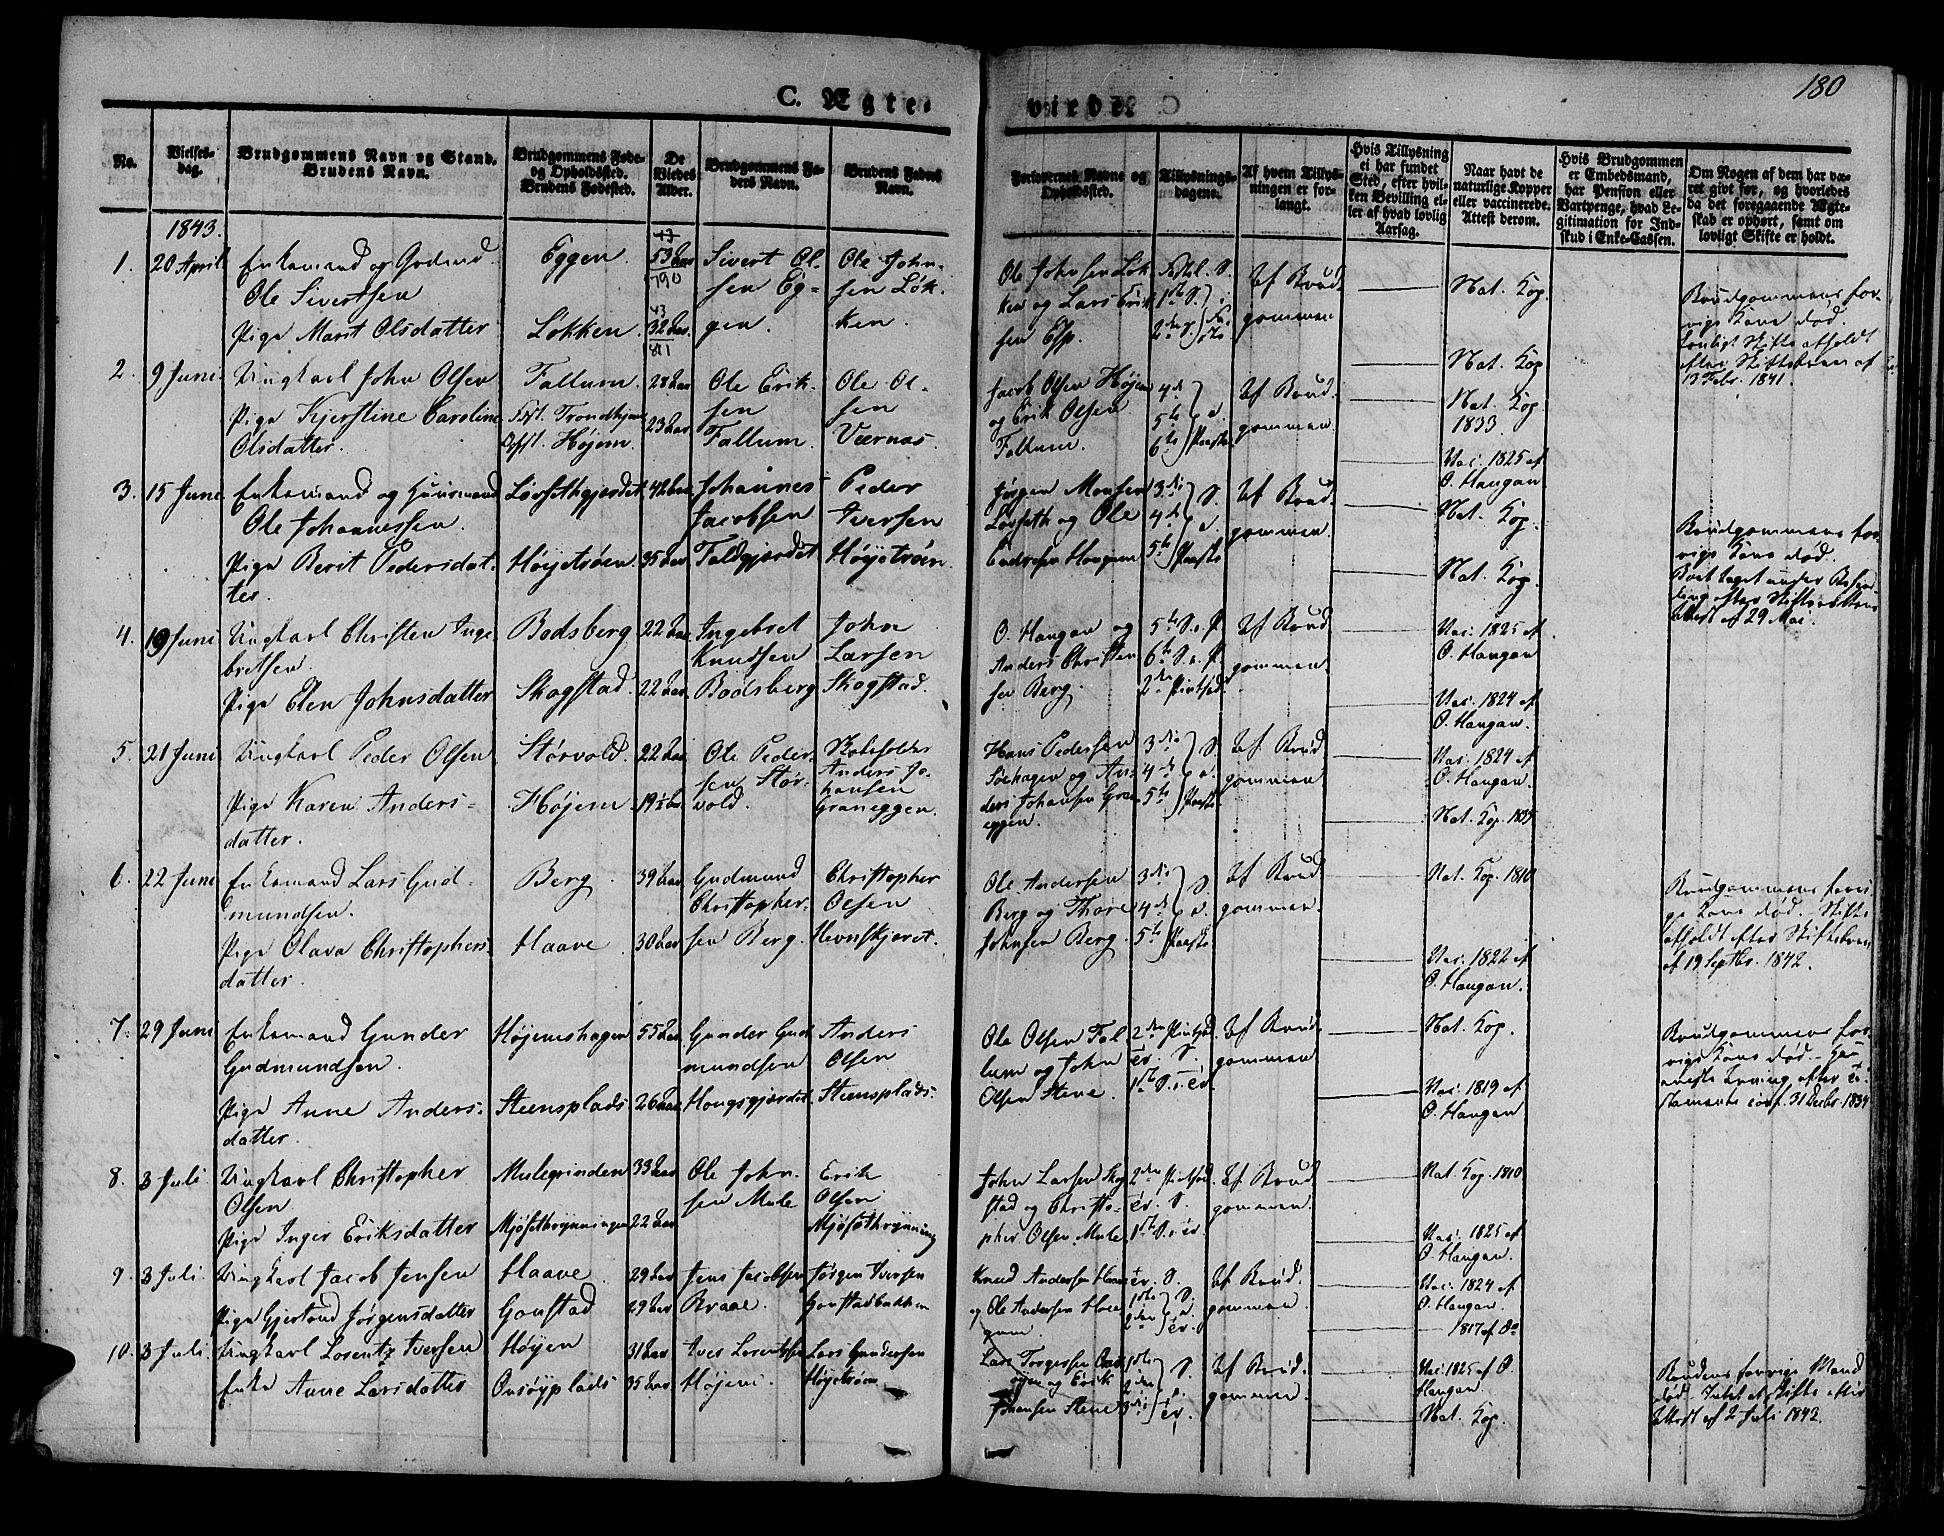 180
C. Ægte-
viede.
No.
Vielses-
dag.
Brudgommens Navn og Stand.
Brudens Navn.
Brudgommens Føde-
og Opholdssted.
Brudens Fødested.
De
Viedes
Alder.
Brudgommens Fa-
ders Navn.
Brudens Faders
Navn.
Forlovernes Navne og
Opholdssted.
Tillysnings-
dagene.
Af hvem Tillys-
ningen er for-
langt.
Hvis Tillysning
ei har fundet
Sted, efter hvil-
ken Bevilling el-
ler af hvad lovlig
Aarsag.
Naar havt de
naturlige Kopper
eller vaccinerede.
Attest derom.
Hvis Brudgommen
er Embedsmand,
har Pension eller
Vartpenge, hvad Le-
gitimation for Ind-
skud i Enke-Cassen.
Om Nogen af dem har væ-
ret gift før, og hvorledes
da det foregaaende Ægte-
skab er ophørt, samt om
lovligt Skifte er holdt.
1843.
1. 20 April
Enkemand og Gmd
Ole Sivertsen
Pige Marit Olsdatter
Eggen
Løkken
53 Aar
790
43
32 Aar
811
Sivert Ol-
sen Eg-
gen.
Ole John-
sen Løk-
ken.
Ole Johnsen Løk
ken og Lars Erik
sen Esp.
Af Brud
gommen
Nat. Kop.
Nat. Kop
Brudgommens for-
rige Kone død.
Lovligt Skifte afholdt
efter Skiftebrev af
13 Febr. 1841.
2. 9 Juni
Ungkarl John Olsen
Pige Kjerstine Caroline
Olsdatter.
Fallum.
Fød. Trondhjem
Opst. Højem.
28 Aar
23 Aar
Ole Erik-
sen
Fallum.
Ole Ol-
sen
Værnæs
Jacob Olsen Højem
og Erik Olsen
Fallum.
4de
5te
6te
S.
e.
Paaske
Af Brud
gommen
Nat. Kop.
1833.
Vac. 1825 af
O. Haugan.
3. 15 Juni
Enkemand og Huusmand
Ole Johannessen.
Pige Berit Pedersdat-
ter.
Løvsethgjerdet
Høyetrøen
42 Aar
35 Aar
Johannes
Jacobsen
Faldgjerdet
Peder
Iversen
Høyetrøen
Jørgen Monsen
Løvseth og Ole
Endresen Haugum
3die
4de
5te
S.
e.
Paaske
Af Brud
gommen.
Nat. Kop.
Nat. Kop.
Brudgommens for-
rige Kone død.
Boet taget under Behan
ling efter Skifterettens
Attest af 29 Mai.
4. 19 Juni
Ungkarl Christen Inge
bretsen.
Pige Elen Johnsdatter
Bodsberg
Skogstad
22 Aar
22 Aar
Ingebret
Knudsen
Bodsberg
John
Larsen
Skogstad.
O. Haugan og
Anders Christen
sen Berg.
5te S. e. P.
6te S. e. P.
2den Pintsed.
Af Brud
gommen.
Vac. 1825 af
O. Haugan
Vac. 1824 af
O. Haugan.
5. 21 Juni
Ungkarl Peder Olsen
Pige Karen Anders-
datter.
Størvold.
Højem
22 Aar
19½ Aar
Ole Peder-
sen Stør-
vold.
Anders Jo-
hansen
Graneggen.
Hans Pedersen
Søehagen og An-
ders Johansen Gran
eggen.
3die
4de
5te
S.
e.
Paaske
Af Brud
gommen
Vac. 1824 af
O. Haugan.
Nat. Kop. 1835
6. 22 Juni
Enkemand Lars Gud-
mundsen.
Pige Olava Christophers-
datter.
Berg
Haave
39 Aar
30 Aar
Gudmund
Christopher-
sen Berg.
Christopher
Olsen
Ole Andersen
Berg og Thore
Johnsen Berg.
3die
4de
5te
S.
e.
Paaske
Af Brud
gommen.
Nat. Kop. 1810
Vac. 1822 af
O. Haugan.
Brudgommens forri
ge Kone død. Skifte
afholdt efter Skiftebrev
af 19 Septbr. 1842.
7. 29 Juni
Enkemand Gunder
Gudmundsen.
Pige Anne Anders-
datter.
Højemshagen
Steensplads
55 Aar
26 Aar
Gunder Gud
mundsen
Haugsgjerdet
Anders
Olsen
Steensplads.
Ole Olsen Fal
lum og John
Olsen Stene.
2den Pintsed.
Tr. S.
1ste S. e. Tr.
Af Brud
gommen
Nat. Kop.
Vac. 1819 af
O. Haugan
Brudgommens for-
rige Kone død.
8. 3 Juli
Ungkarl Christopher
Olsen
Pige Inger Eriksdatter
Mulegrinden
Mjøsethrynningen
33 Aar
22 Aar
Ole John-
sen Mule
Erik
Olsen
Mjøsethrynning
John Larsen Skog
stad og Christo-
pher Olsen Mule
2den Pintsed.
Tr. S.
1ste S. e. Tr.
Af Brud
gommen.
Nat. Kop. 1810
Vac. 1825 af
O. Haugan.
9. 3 Juli.
Ungkarl Jacob Jensen
Pige Gjertrud Jørgensdatter
Haave
Gonstad
29 Aar
29 Aar
Jens Jacobsen
Braae.
Jørgen Iversen
Gonstadbakken
Knud Andersen Haave
og Ole Andersen
Tr. S.
1ste
2den
S.
e.
Tr.
Af Brud.
gommen.
Vac. 1824 af
O. Haugan.
1817 af Do
10. 3 Juli.
Ungkarl Lorentz Iversen
Enke Anne Larsdatter
Høyem
Onsøyplads
31 Aar
35 Aar
Iver Lorentzen
Højem.
Lars Gundersen
Høyetrøen
Lars Torgersen
og Erik
Johansen Stene
1ste
2den
3die
S.
e.
Tr.
Af Brud
gommen.
Vac. 1825 af O.
Haugan.
Nat. Kop.
Brudens forrige Mand
død. Intet at skifte efter
Attest af 2 Juli 1843.